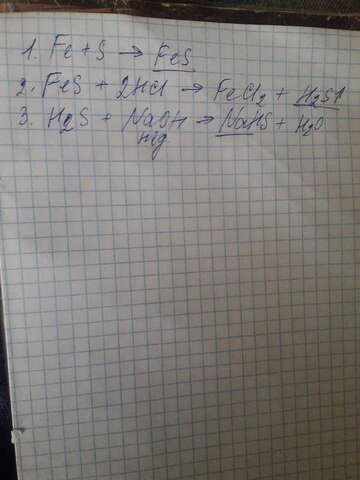 1. Fe + S → FeS
2. FeS + 2HCl → FeCl2 + H2S↑
3. H2S + NaOH → NaHS + H2O